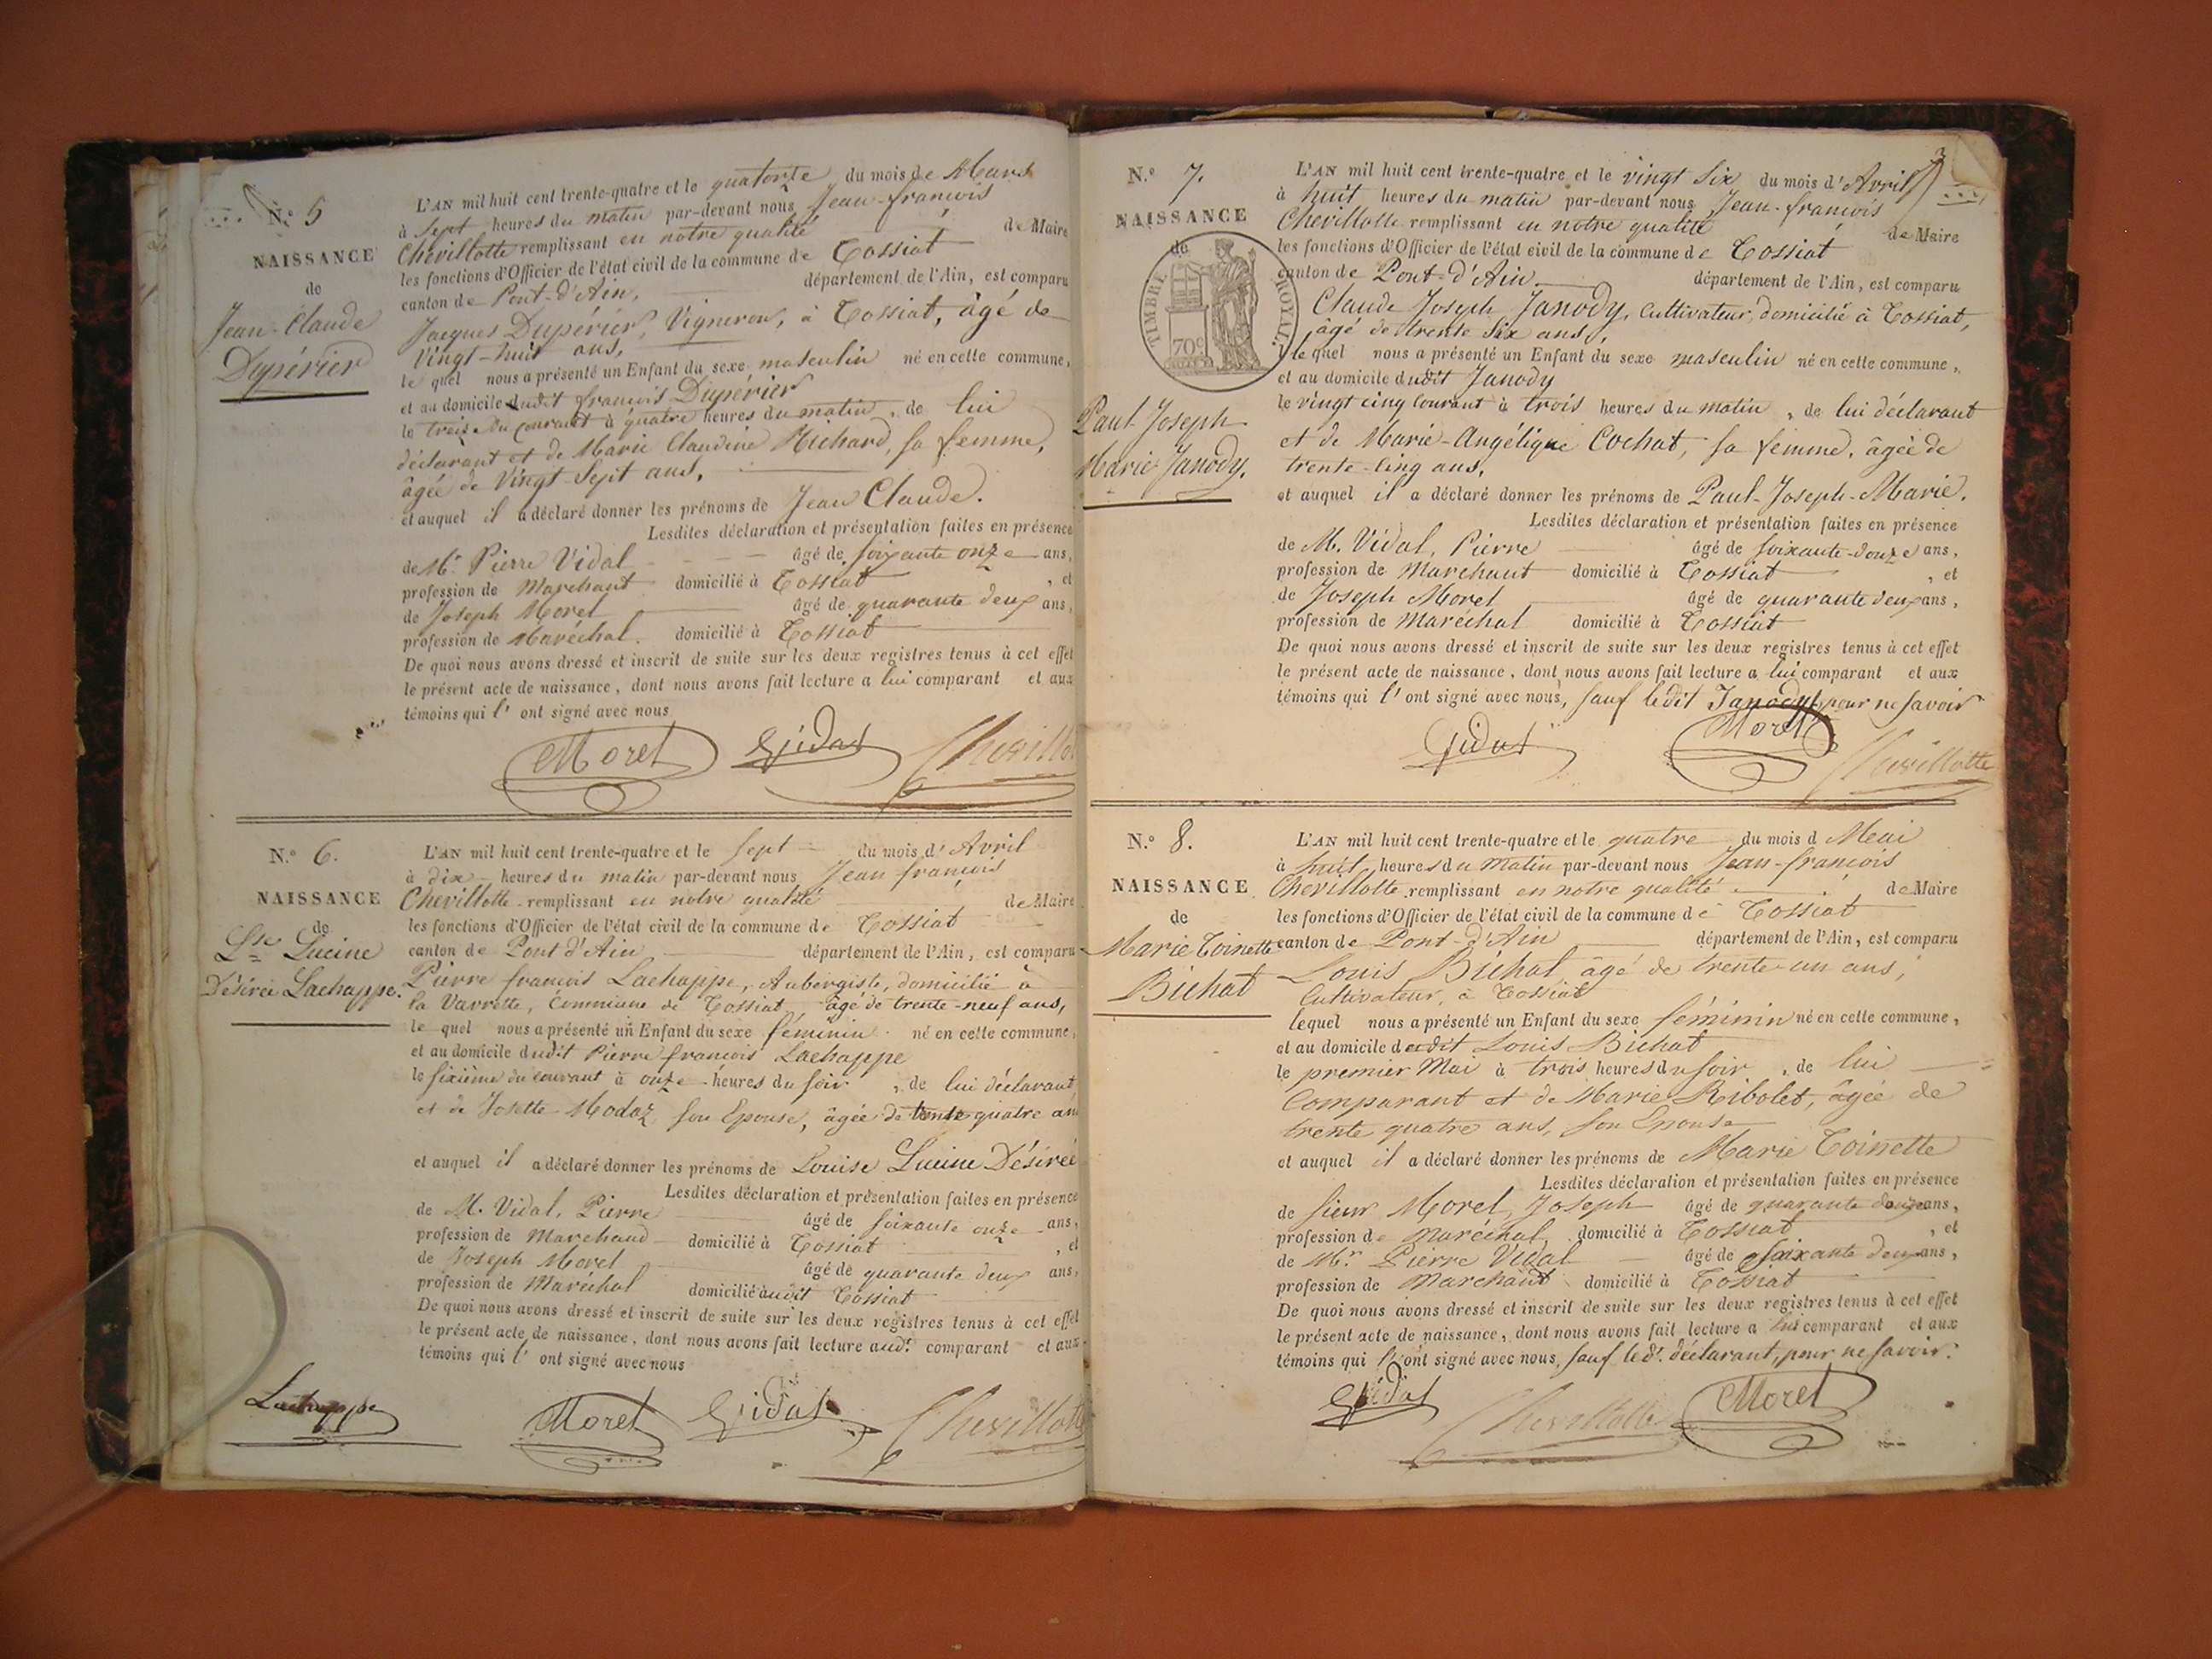 N.º 5
NAISSANCE
de
Jean-Claude
Dupérier
L'AN mil huit cent trente-quatre et le quatorze du mois de Mars
à Sept heures du matin par-devant nous Jean-françois
Chevillotte remplissant en notre qualité de Maire
les fonctions d'Officier de l'état civil de la commune de Tossiat
canton de Pont-d'Ain, département de l'Ain, est comparu
Jacques Dupérier, Vigneron, à Tossiat, âgé de
Vingt-huit ans,
le quel nous a présenté un Enfant du sexe masculin né en cette commune,
et au domicile dudit françois Dupérier
le treize du courant à quatre heures du matin, de lui
déclarant et de Marie Claudine Michard, sa femme,
âgée de Vingt-Sept ans,
et auquel il a déclaré donner les prénoms de Jean Claude.
Lesdites déclaration et présentation faites en présence
de Mr. Pierre Vidal âgé de soixante onze ans,
profession de Marchant domicilié à Tossiat, et
de Joseph Morel âgé de quarante deux ans,
profession de Maréchal. domicilié à Tossiat
De quoi nous avons dressé et inscrit de suite sur les deux registres tenus à cet effet
le présent acte de naissance, dont nous avons fait lecture a lui comparant et aux
témoins qui l' ont signé avec nous
Morel Vidal Chevillot
N.º 6.
NAISSANCE
de
Lse Lucine
Désirée Lachappe.
L'AN mil huit cent trente-quatre et le Sept du mois d'Avril
à dix heures du matin par-devant nous Jean françois
Chevillotte remplissant en notre qualité de Maire
les fonctions d'Officier de l'état civil de la commune de Tossiat
canton de Pont d'Ain département de l'Ain, est comparu
Pierre françois Lachappe, Aubergiste, domicilié à
la Varrette, Commune de Tossiat âgé de trente-neuf ans,
le quel nous a présenté un Enfant du sexe féminin né en cette commune,
et au domicile dudit Pierre françois Lachappe
le sixième du courant à onze heures du soir, de lui déclarant
et de Josette Modaz, son Epouse, âgée de trente quatre an
et auquel il a déclaré donner les prénoms de Louise Lucine Désirée
Lesdites déclaration et présentation faites en présence
de M. Vidal, Pierre âgé de soixante onze ans,
profession de Marchand domicilié à Tossiat, et
de Joseph Morel âgé de quarante deux ans,
profession de Maréchal domicilié audit Tossiat
De quoi nous avons dressé et inscrit de suite sur les deux registres tenus à cet effet
le présent acte de naissance, dont nous avons fait lecture aud.t comparant et aux
témoins qui l' ont signé avec nous
Lachappe Morel Vidal Chevillott
3
N.º 7.
NAISSANCE
de
TIMBRE ROYAL
70c
Paul Joseph
Marie Janody.
L'AN mil huit cent trente-quatre et le vingt Six du mois d'Avril
à huit heures du matin par-devant nous Jean-françois
Chevillotte remplissant en notre qualité de Maire
les fonctions d'Officier de l'état civil de la commune de Tossiat
canton de Pont-d'Ain département de l'Ain, est comparu
Claude Joseph Janody, Cultivateur, domicilié à Tossiat,
âgé de trente Six ans,
le quel nous a présenté un Enfant du sexe masculin né en cette commune,
et au domicile dudit Janody
le vingt cinq Courant à trois heures du matin, de lui déclarant
et de Marie-Angélique Cochat, sa femme, âgée de
trente-cinq ans,
et auquel il a déclaré donner les prénoms de Paul-Joseph-Marie.
Lesdites déclaration et présentation faites en présence
de M. Vidal, Pierre âgé de soixante-douze ans,
profession de Marchant domicilié à Tossiat, et
de Joseph Morel âgé de quarante deux ans,
profession de Maréchal domicilié à Tossiat
De quoi nous avons dressé et inscrit de suite sur les deux registres tenus à cet effet
le présent acte de naissance, dont nous avons fait lecture a lui comparant et aux
témoins qui l' ont signé avec nous, sauf ledit Janody, pour ne savoir
Vidal Morel Chevillotte
N.º 8.
NAISSANCE
de
Marie Toinette
Bichat
L'AN mil huit cent trente-quatre et le quatre du mois d Meai
à huit heures du matin par-devant nous Jean-françois
Chevillotte remplissant en notre qualité de Maire
les fonctions d'Officier de l'état civil de la commune de Tossiat
canton de Pont-d'Ain département de l'Ain, est comparu
Louis Bichat âgé de trente-un ans,
Cultivateur, à Tossiat
lequel nous a présenté un Enfant du sexe féminin né en cette commune,
et au domicile dudit Louis Bichat
le premier Mai à trois heures du soir, de lui
Comparant et de Marie Ribolet, âgée de
trente quatre ans, son Epouse
et auquel il a déclaré donner les prénoms de Marie Toinette
Lesdites déclaration et présentation faites en présence
de sieur Morel, Joseph âgé de quarante deux ans,
profession de Maréchal, domicilié à Tossiat, et
de Mr. Pierre Vidal âgé de soixante deux ans,
profession de Marchand domicilié à Tossiat
De quoi nous avons dressé et inscrit de suite sur les deux registres tenus à cet effet
le présent acte de naissance, dont nous avons fait lecture a lui comparant et aux
témoins qui l'ont signé avec nous, sauf led.t déclarant, pour ne savoir.
Vidal Chevillotte Morel